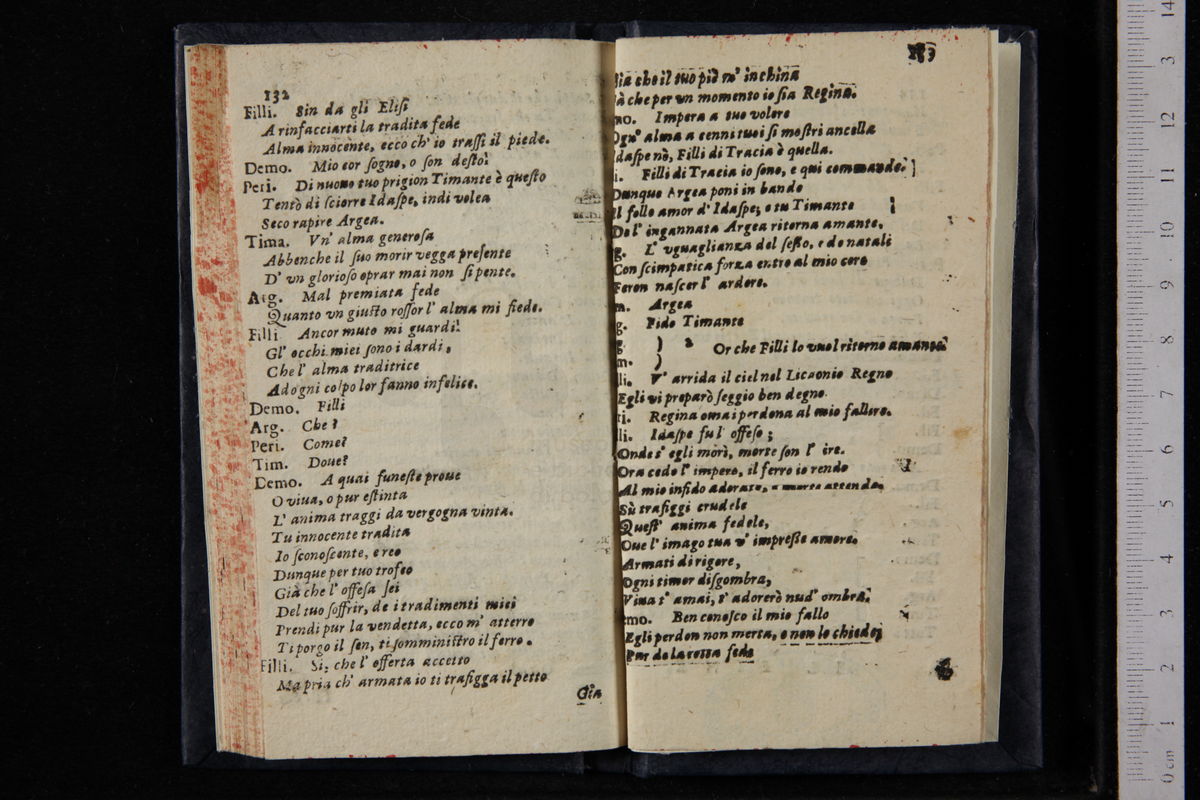 132
Filli. Sin da gli Elisi
A rinfacciarti la tradita fede
Alma innocente, ecco ch' io trassi il piede.
Demo. Mio cor sogno, o son desto!
Peri. Di nuouo tuo prigion Timante è questo
Tentò di sciorre Idaspe, indi volea
Seco rapire Argea.
Tima. Vn' alma generosa
Abbenche il suo morir vegga presente
D' vn glorioso oprar mai non si pente.
Arg. Mal premiata fede
Quanto vn giusto rossor l' alma mi fiede.
Filli Ancor muto mi guardi!
Gl' occhi miei sono i dardi,
Che l' alma traditrice
Ad ogni colpo lor fanno infelice.
Demo. Filli
Arg. Che?
Peri. Come?
Tim. Doue?
Demo. A quai funeste proue
O viua, o pur estinta
L' anima traggi da vergogna vinta.
Tu innocente tradita
Io sconoscente, e reo
Dunque per tuo trofeo
Già che l' offesa sei
Del tuo soffrir, de i tradimenti miei
Prendi pur la vendetta, ecco m' atterro
Ti porgo il sen, ti somministro il ferro.
Filli. Si, che l' offerta accetto
Ma pria ch' armata io ti trafigga il petto
Gia
133
Gia che il tuo piè m' inchina
à che per vn momento io sia Regina.
mo. Impera a tuo volere
Ogn' alma a cenni tuoi si mostri ancella
Idaspe nò, Filli di Tracia è quella.
i. Filli di Tracia io sono, e qui commando.
Dunque Argea poni in bando
Il folle amor d' Idaspe, e tu Timante
De l' ingannata Argea ritorna amante.
g. L' vguaglianza del sesto, e de natali
Con scimpatica forza entro al mio core
Feron nascer l' ardore.
m. Argea
g. Fido Timante
g.
m. } a 2 Or che Filli lo vuol ritorno amante.
lli. V' arrida il ciel nel Licaonio Regno
Egli vi preparò seggio ben degno.
ri. Regina omai perdona al mio fallire.
lli. Idaspe fu l' offeso;
Onde s' egli morì, morte son l' ire.
Ora cedo l' impero, il ferro io rendo
Al mio infido adorato, e morte attendo.
Sù trafiggi crudele
Quest' anima fedele,
Oue l' imago tua v' impresse amore.
Armati di rigore,
Ogni timor disgombra,
Viua t' amai, t' adorerò nud' ombra.
emo. Ben conosco il mio fallo
Egli perdon non merta, e non lo chiede
Pur de la rossa fede